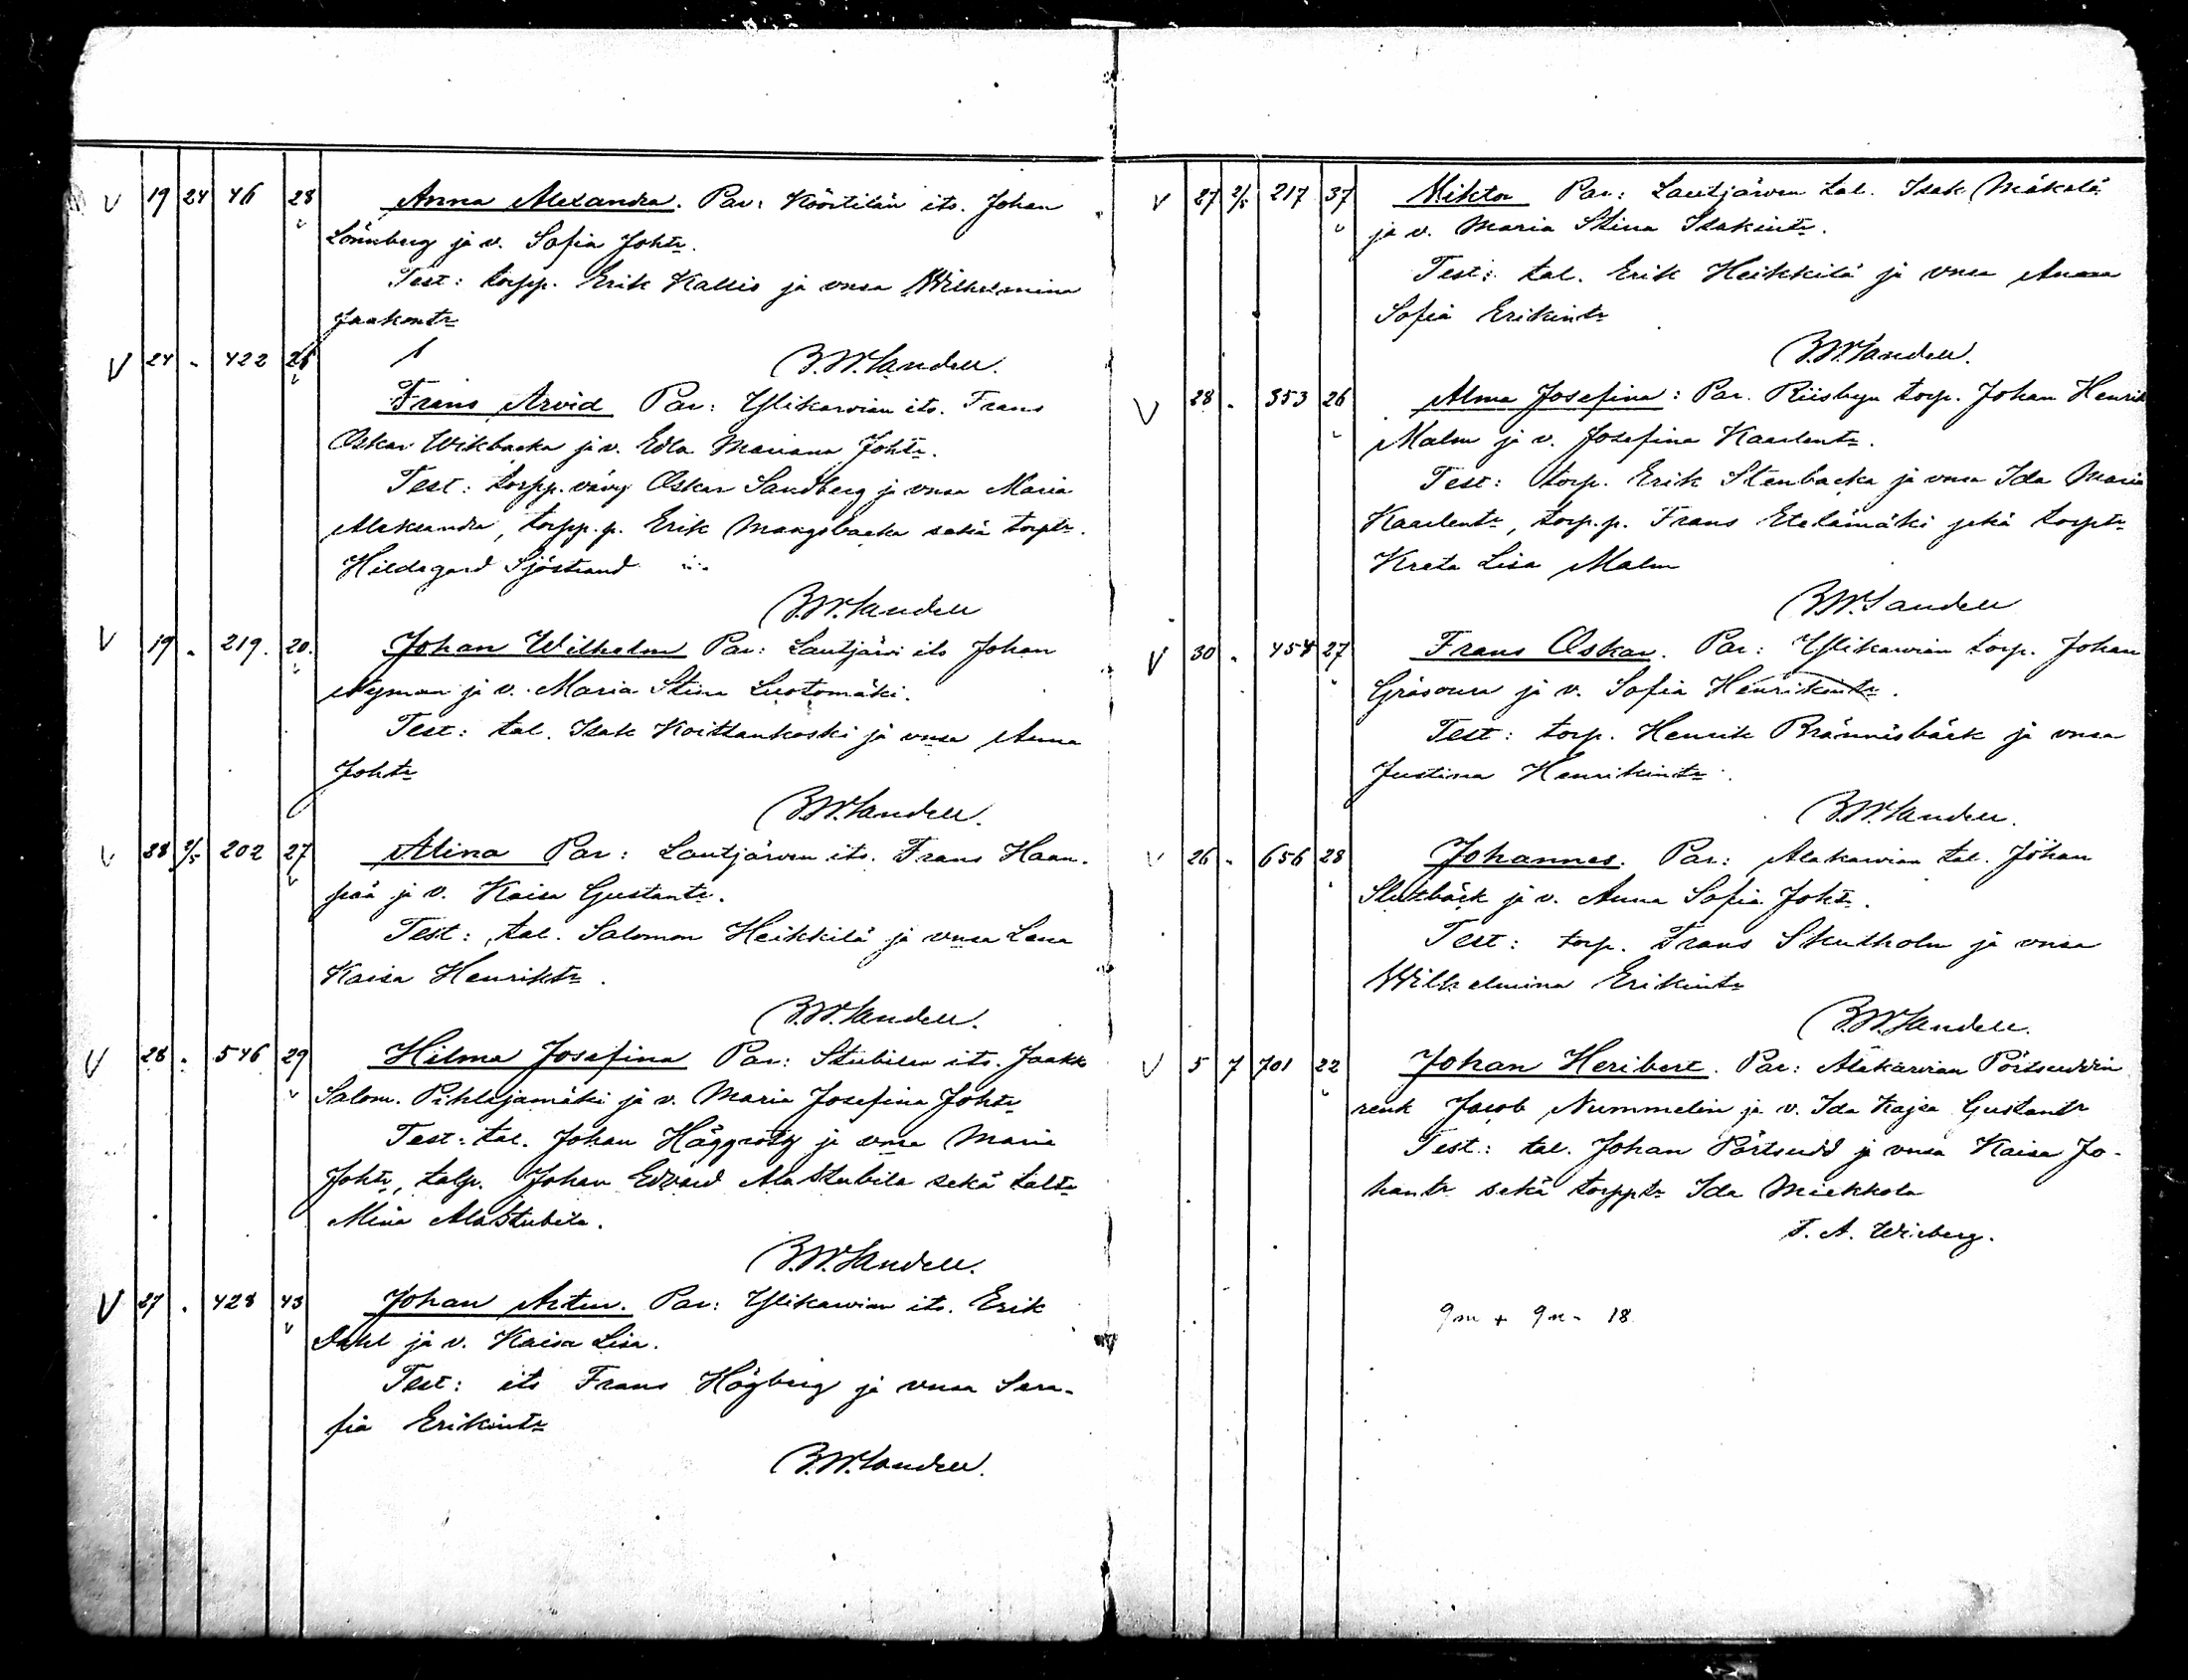 V 19 24 46 28 Anna Alexandra. Par: Köörtilän its. Johan
Lönnberg ja v. Sofia Joht:r.
Test: torpp. Erik Kallio ja vmsa Wilhelmina
Jaakontr
V 24 " 422 26 B.W.Sandell.
Frans Arvid Par: Ylikarvian its. Frans
Oskar Wikbacka ja v. Edla Mariana Johtr.
Test: torpp. vävy Oskar Sandberg ja vmsa Maria
Aleksandra, torpp. p. Erik Mangsbacka sekä torptr.
Hildegard Sjöstrand
B.W.Sandell
V 19 " 219. 20. Johan Wilhelm Par: Lautjärvi its Johan
Nyman ja v. Maria Stina Luotomäki.
Test: tal. Isak Koittankoski ja vmsa Anna
Johtr
B.W.Sandell.
V 28 2/5 202 27 Alina Par: Lautjärven its. Frans Haan-
pää ja v. Kaisa Gustantr.
Test: tal. Salomon Heikkilä ja vmsa Lena
Kaisa Henriktr.
B.W.Sandell.
V 28 " 546 29 Hilma Josefina Par: Stubilan its. Jaakk
Salom. Pihlajamäki ja v. Maria Josefina Johtr
Test: tal. Johan Häggroth ja vmsa Maria
Johtr, talp. Johan Edvard AlaStubila sekä taltr
Mina AlaStubila.
B.W.Sandell.
V 27 " 428 43 Johan Artur. Par: Ylikarvian its. Erik
Dahl ja v. Kaisa Lisa.
Test: its Frans Högberg ja vmsa Sera-
fia Erikintr
B.W.Sandell.
V 27 2/5 217 37 Wiktor Par: Lautjärven tal. Isak Mäkelä
ja v. Maria Stina Isakintr.
Test: tal. Erik Heikkilä ja vmsa Anna
Sofia Erikintr
B.W.Sandell.
V 28 " 353 26 Alma Josefina: Par. Riisbyn torp. Johan Henrik
Malm ja v. Josefina Kaarlentr.
Test: torp. Erik Stenbacka ja vmsa Ida Maria
Kaarlentr, torp.p. Frans Etelämäki sekä torptr
Kreta Lisa Malm
B.W.Sandell
V 30 " 454 27 Frans Oskar. Par: Ylikarvian torp. Johan
Gräsour ja v. Sofia Henrikintr.
Test: torp. Henrik Brännisbäck ja vmsa
Justina Henrikintr.
B.W.Sandell.
V 26 " 656 28 Johannes. Par: Alakarvian tal. Johan
Slutbäck ja v. Anna Sofia Johtr.
Test: torp. Frans Skutholm ja vmsa
Wilhelmina Erikintr
B.W.Sandell.
V 5 7 701 22 Johan Heribert. Par: Alakarvian Pörtsuddin
renk Jacob Nummelin ja v. Ida Kajsa Gustantr
Test: tal. Johan Pörtsudd ja vmsa Kaisa Jo-
hantr sekä torpptr Ida Miekkola
F. A. Wiberg.
9 m + 9 n = 18